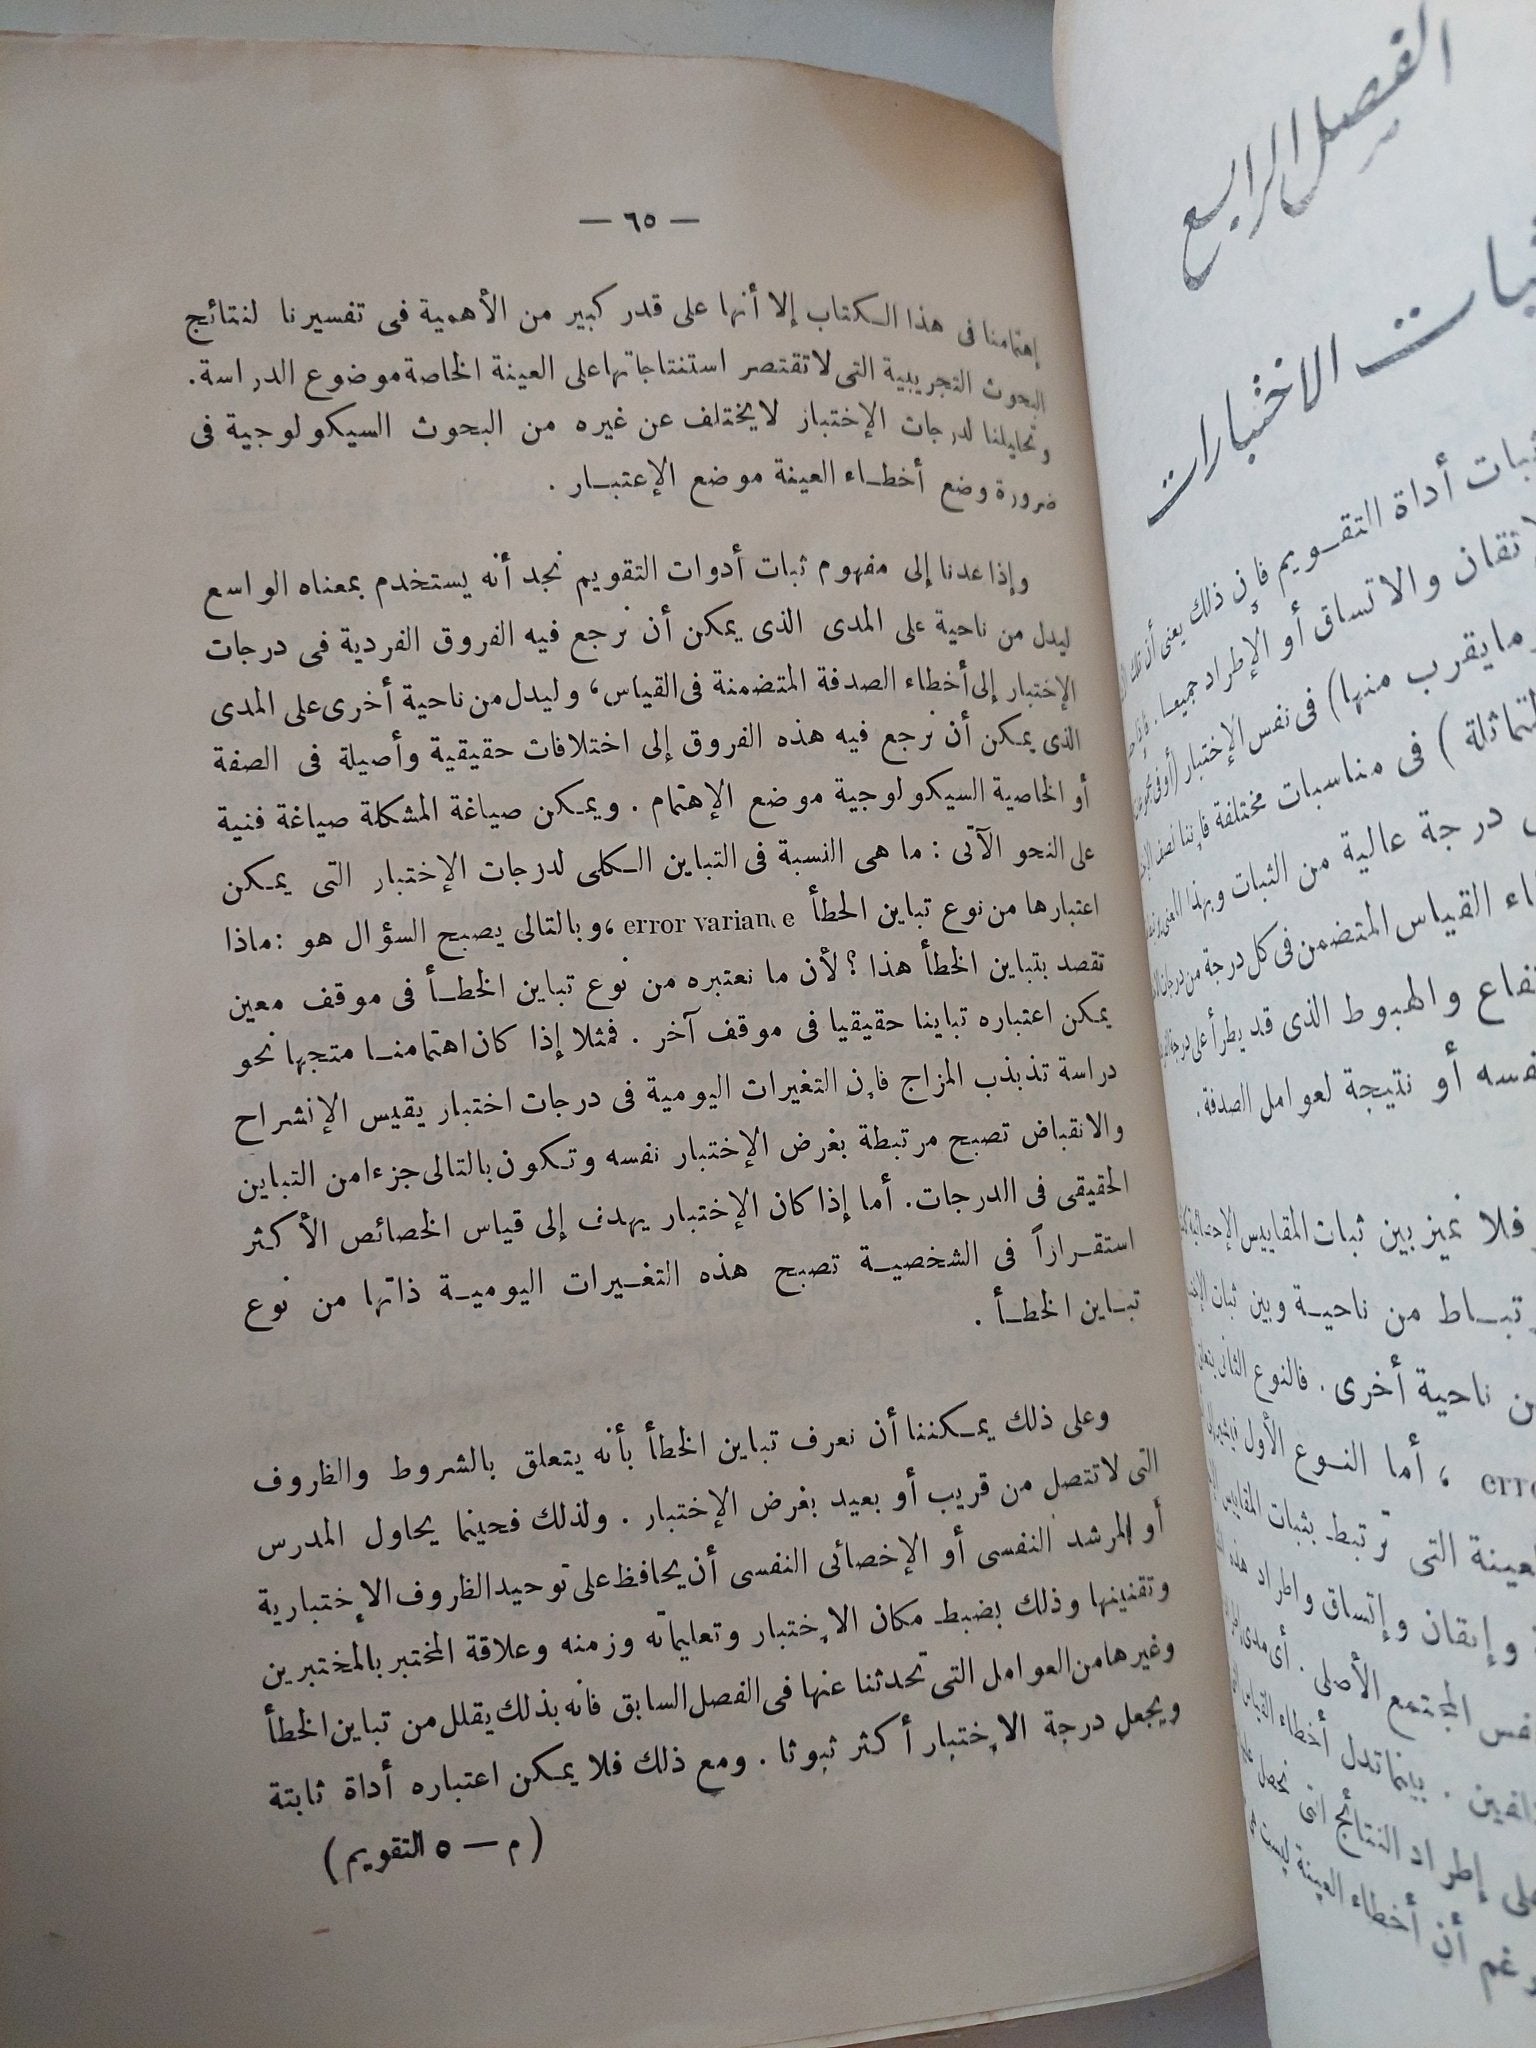 الفصل الرابع
ثبات الاختبارات
ثبات أداة التقـويم فإن ذلك يعنى أن تلك
والاتساق أو الإطراد جميعـا .
ما يقرب منها ) فى نفس الإختبار ( أو فى
) فى مناسبات مختلفة فإننا نصف
درجة عالية من الثبات وبهذا المعنى
القياس المتضمن فى كل درجة من درجات
والهبوط الذى قد يطرأ على درجة
أو نتيجة لعوامل الصدفة .
فلا نميز بين ثبات المقاييس الإحصائية
من ناحيـة وبين ثبات
ناحية أخرى . فالنوع الثانى
، أما النـوع الأول
العينة التى ترتبط بثبات المقاييس
وإتقان وإتساق واطراد هذه
المجتمع الأصلى . أى مدى
. بينما تدل أخطاء القياس
إطراد النتائج التى نحصل
أن أخطاء العينة ليست
— ٦٥ —
إهتمامنا فى هذا الـكتاب إلا أنها على قدر كبير من الأهمية فى تفسيرنا لنتائج
البحوث التجريبية التى لا تقتصر استنتاجاتها على العينة الخاصة موضوع الدراسة .
وتحليلنا لدرجات الإختبار لا يختلف عن غيره من البحوث السيكولوجية فى
ضرورة وضع أخطـاء العينة موضع الإعتبـار .
وإذا عدنا إلى مفهوم ثبات أدوات التقويم نجد أنه يستخدم بمعناه الواسع
ليدل من ناحية على المدى الذى يمكن أن نرجع فيه الفروق الفردية فى درجات
الإختبار إلى أخطاء الصدفة المتضمنة فى القياس ، وليدل من ناحية أخرى على المدى
الذى يمـكن أن نرجع فيه هذه الفروق إلى اختلافات حقيقية وأصيلة فى الصفة
أو الخاصية السيكولوجية موضع الإهتمام . ويمـكن صياغة المشكلة صياغة فنية
على النحو الآتى : ما هى النسبة فى التباين الـكلى لدرجات الإختبار التى يمـكن
اعتبارها من نوع تباين الخطأ error variance ، وبالتالى يصبح السؤال هو : ماذا
نقصد بتباين الخطأ هذا ؟ لأن ما نعتبره من نوع تباين الخطـأ فى موقف معين
يمكن اعتباره تباينا حقيقيا فى موقف آخر . فمثلا إذا كان اهتمامنـا متجها نحو
دراسة تذبذب المزاج فإن التغيرات اليومية فى درجات اختبار يقيس الإنشراح
والانقباض تصبح مرتبطة بغرض الإختبار نفسه وتـكون بالتالى جزءا من التباين
الحقيقى فى الدرجات . أما إذا كان الإختبار يهدف إلى قياس الخصائص الأكثر
استقـراراً فى الشخصيـة تصبح هذه التغـيرات اليوميـة ذاتها من نوع
تبـاين الخطـأ .
وعلى ذلك يمـكننا أن نعرف تباين الخطأ بأنه يتعلق بالشروط والظروف
التى لا تتصل من قريب أو بعيد بغرض الإختبار . ولذلك فحينما يحاول المدرس
أو المرشد النفسى أو الإخصائى النفسى أن يحافظ على توحيد الظروف الإختبارية
وتقنينها وذلك بضبط مكان الإختبار وتعليماته وزمنه وعلاقة المختبر بالمختبرين
وغيرها من العوامل التى تحدثنا عنها فى الفصل السابق فانه بذلك يقلل من تباين الخطأ
ويجعل درجة الإختبار أكثر ثبوتا . ومع ذلك فلا يمـكن اعتباره أداة ثابتة
( م — ٥ التقويم )